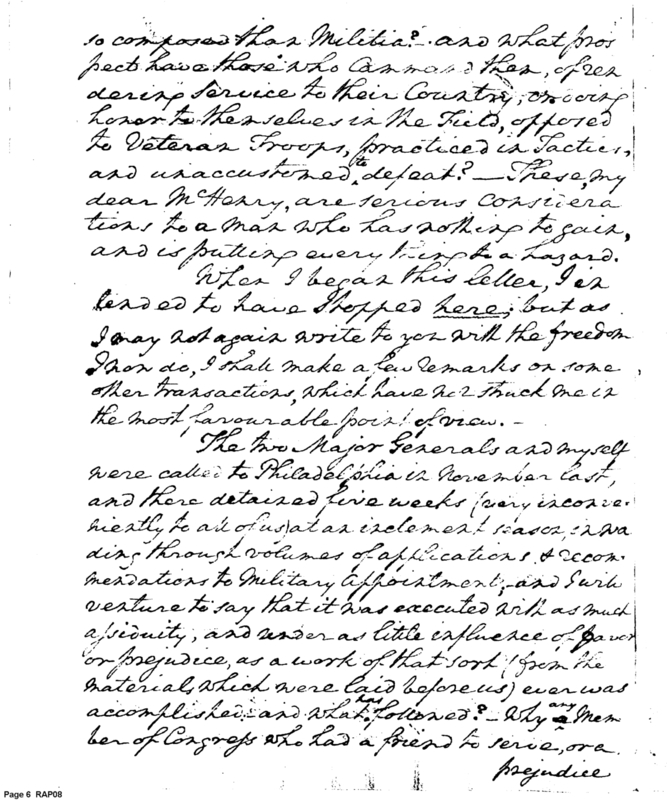 so composed than Militia? - and what pros
pect have those who Command them, of ren
dering Service to their Country, or doing
honor to themselves in the Field, opposed
to Veteran Troops, practiced in Tactics,
and unaccustomed to defeat? - These, my
dear McHenry, are serious considera
tions to a man who has nothing to gain,
and is putting every thing to a hazard.
When I began this letter, I in
tended to have stopped here; but as
I may not again write to you with the freedom
I now do, I shall make a few remarks on some
other transactions, which have not struck me in
the most favourable point of view. -
The two Major Generals and myself
were called to Philadelphia in November last,
and there detained five weeks (very inconve-
niently to all of us) at an inclement season, in wa
ding through volumes of applications & recom-
mendations to Military appointment; - and I will
venture to say that it was executed with as much
assiduity, and under as little influence of favor
or prejudice, as a work of that sort (from the
materials which were laid before us) ever was
accomplished: and what has followed? - Why any Mem
ber of Congress who had a friend to serve, or a
prejudice
Page 6 RAP08